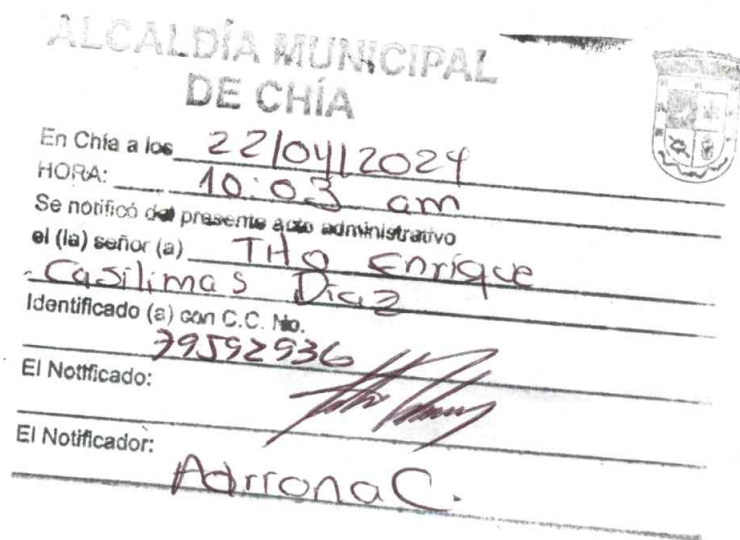 ALCALDÍA MUNICIPAL
DE CHÍA
En Chía a los 22/04/2024
HORA: 10:03 am
Se notificó del presente acto administrativo
el (la) señor (a) Tito Enrique
Casilimas Diaz
Identificado (a) con C.C. No.
79592936
El Notificado:
El Notificador:
Adriana C.